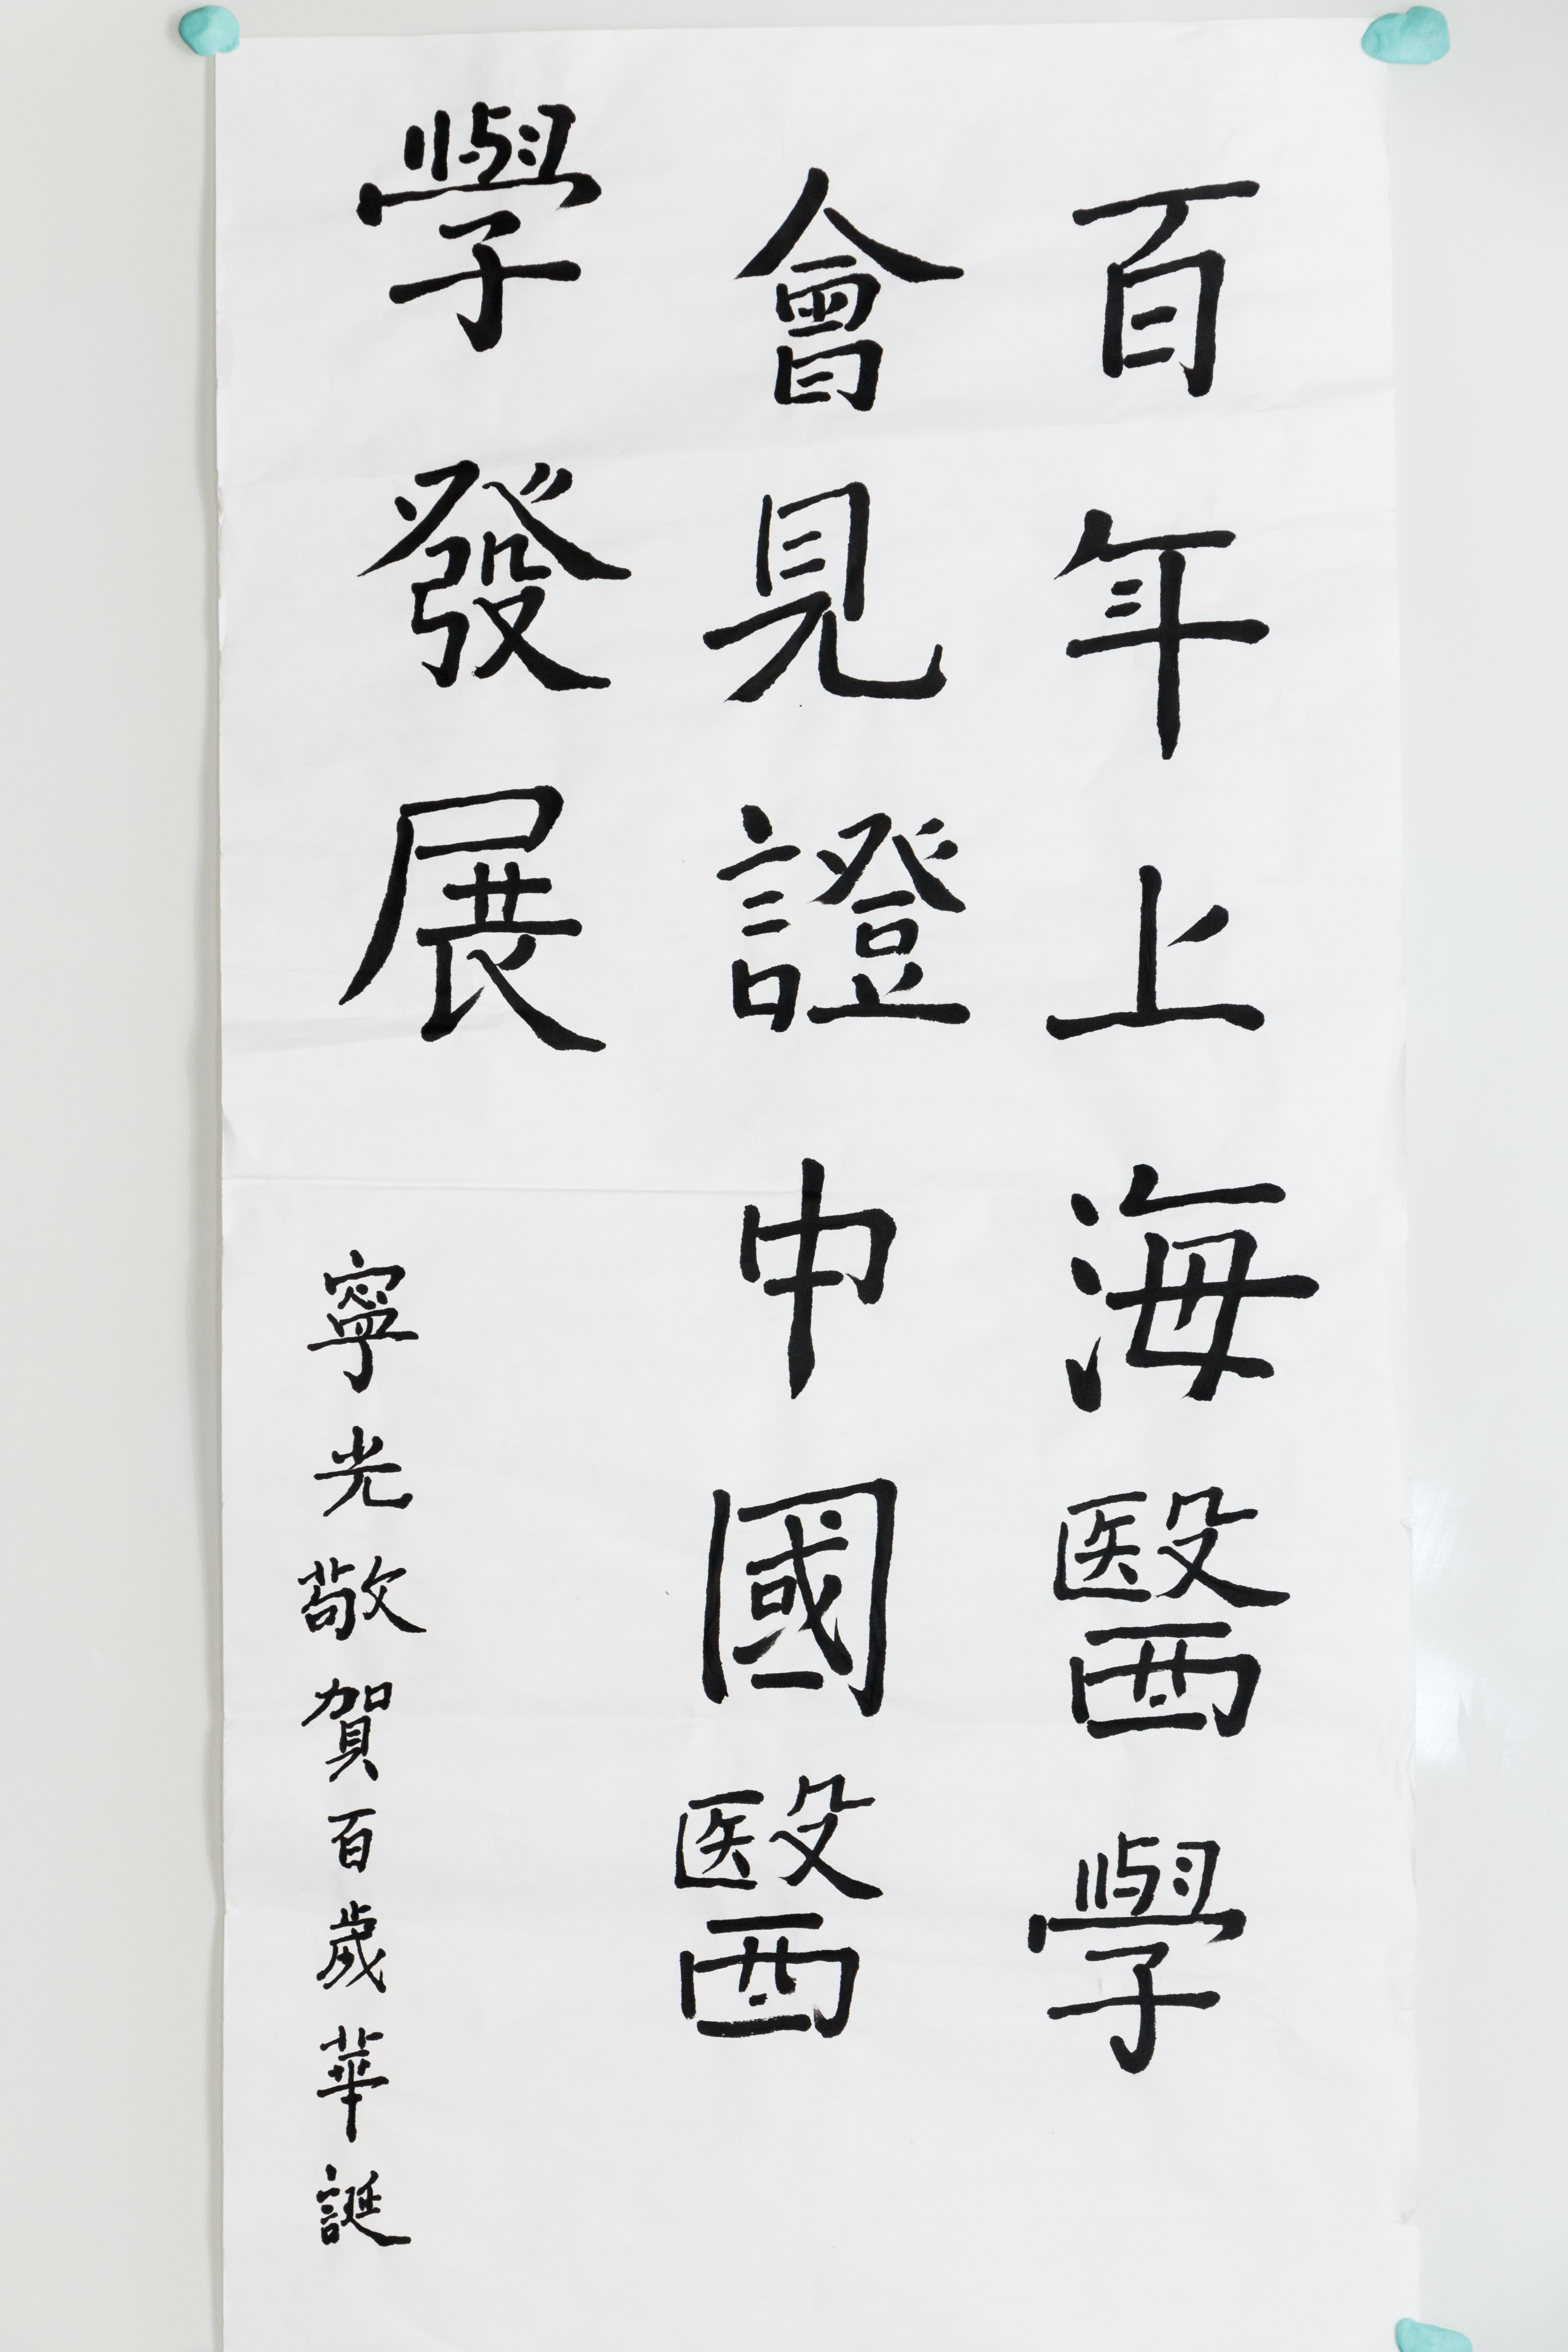 百年上海醫學
會見證中國醫
學發展
寧光敬賀百歲華誕